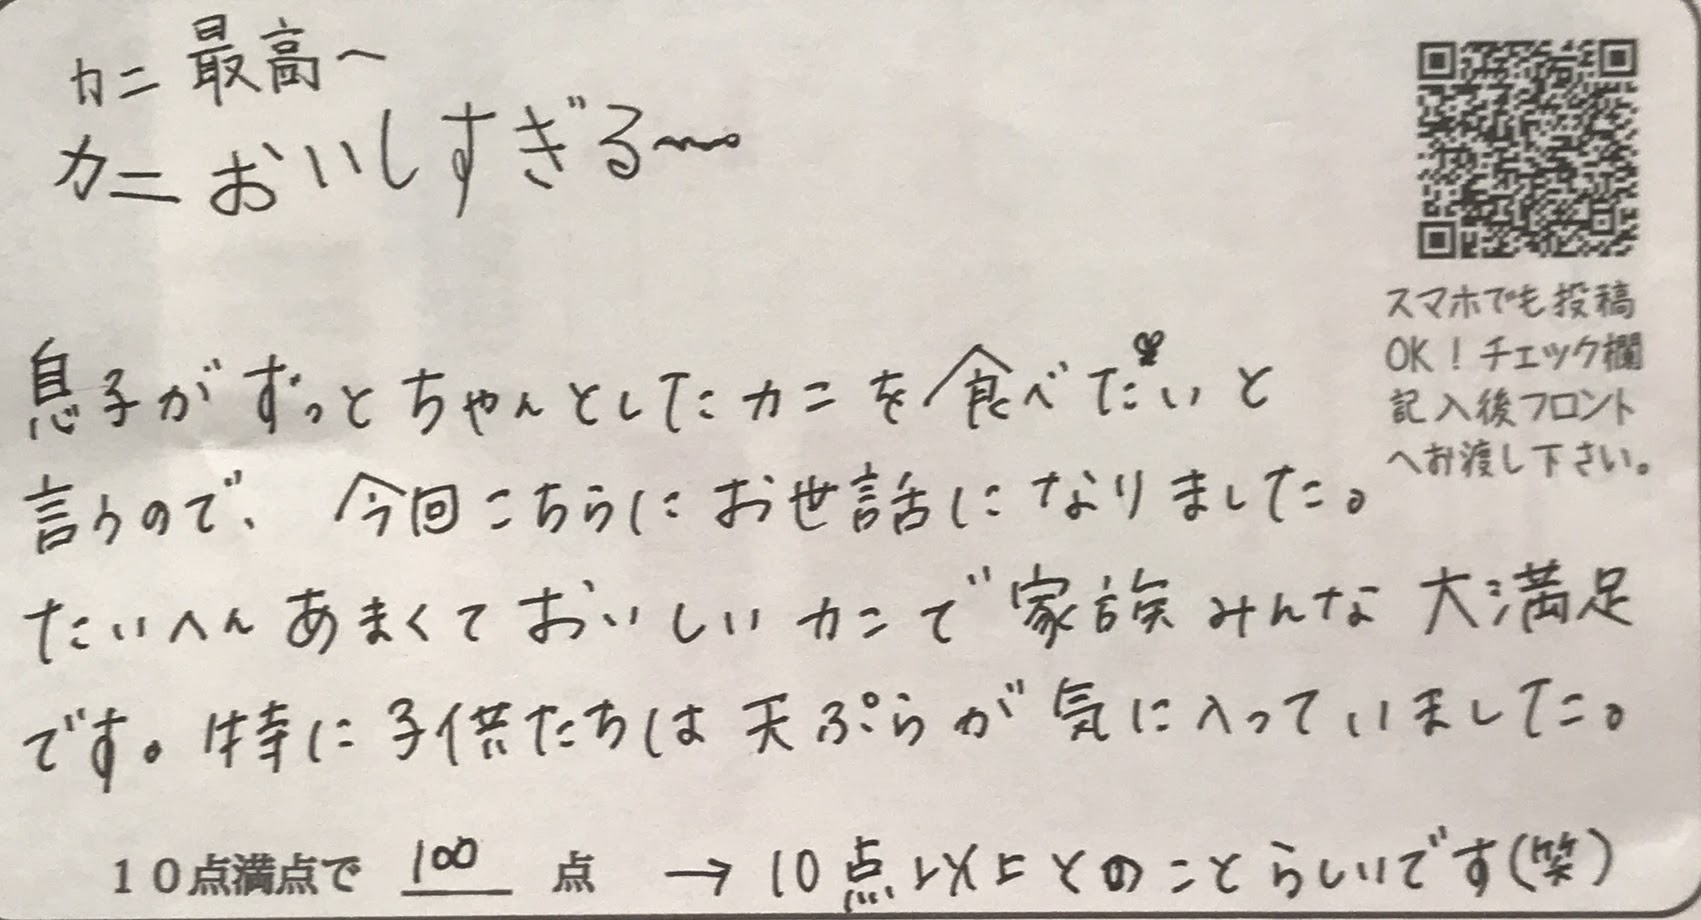 カニ 最高〜
カニ おいしすぎる〜。
スマホでも投稿
OK！チェック欄
記入後フロント
へお渡し下さい。
息子がずっとちゃんとしたカニを食べたいと
言うので、今回こちらにお世話になりました。
たいへんあまくておいしいカニで家族みんな大満足
です。特に子供たちは天ぷらが気に入っていました。
10点満点で 100 点 → 10点以上とのことらしいです(笑)